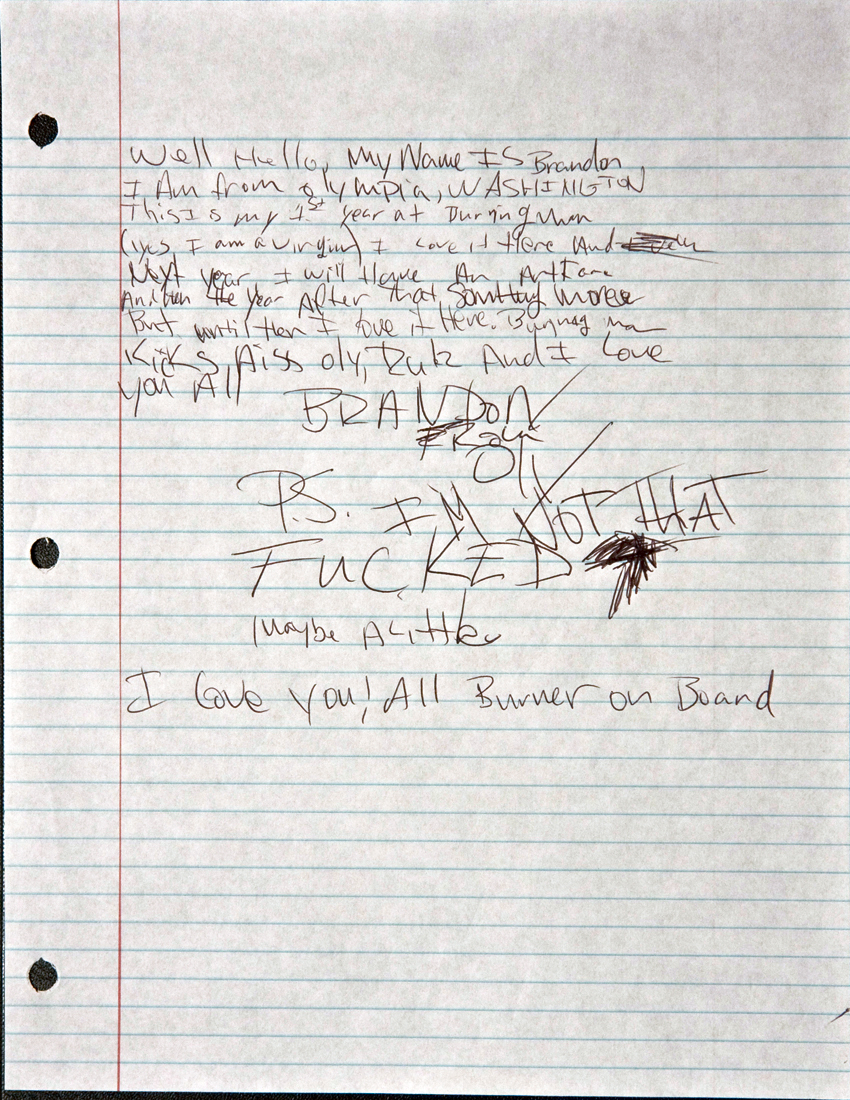 Well Hello, My Name IS Brandon,
I Am from olympia, WASHINGTON
This Is my 1st year at Burning Man
(yes I am a virgin) I Love it Here And
Next year I will Have An Art Car
And then the year After that, Somthing more
But until then I love it Here. Burning man
Kicks Ass oly, Rulz And I Love
you All
BRANDON
FROM
Oly
P.S. I'M NOT THAT
FUCKED
Maybe A Little
I Love you! All Burner on Board